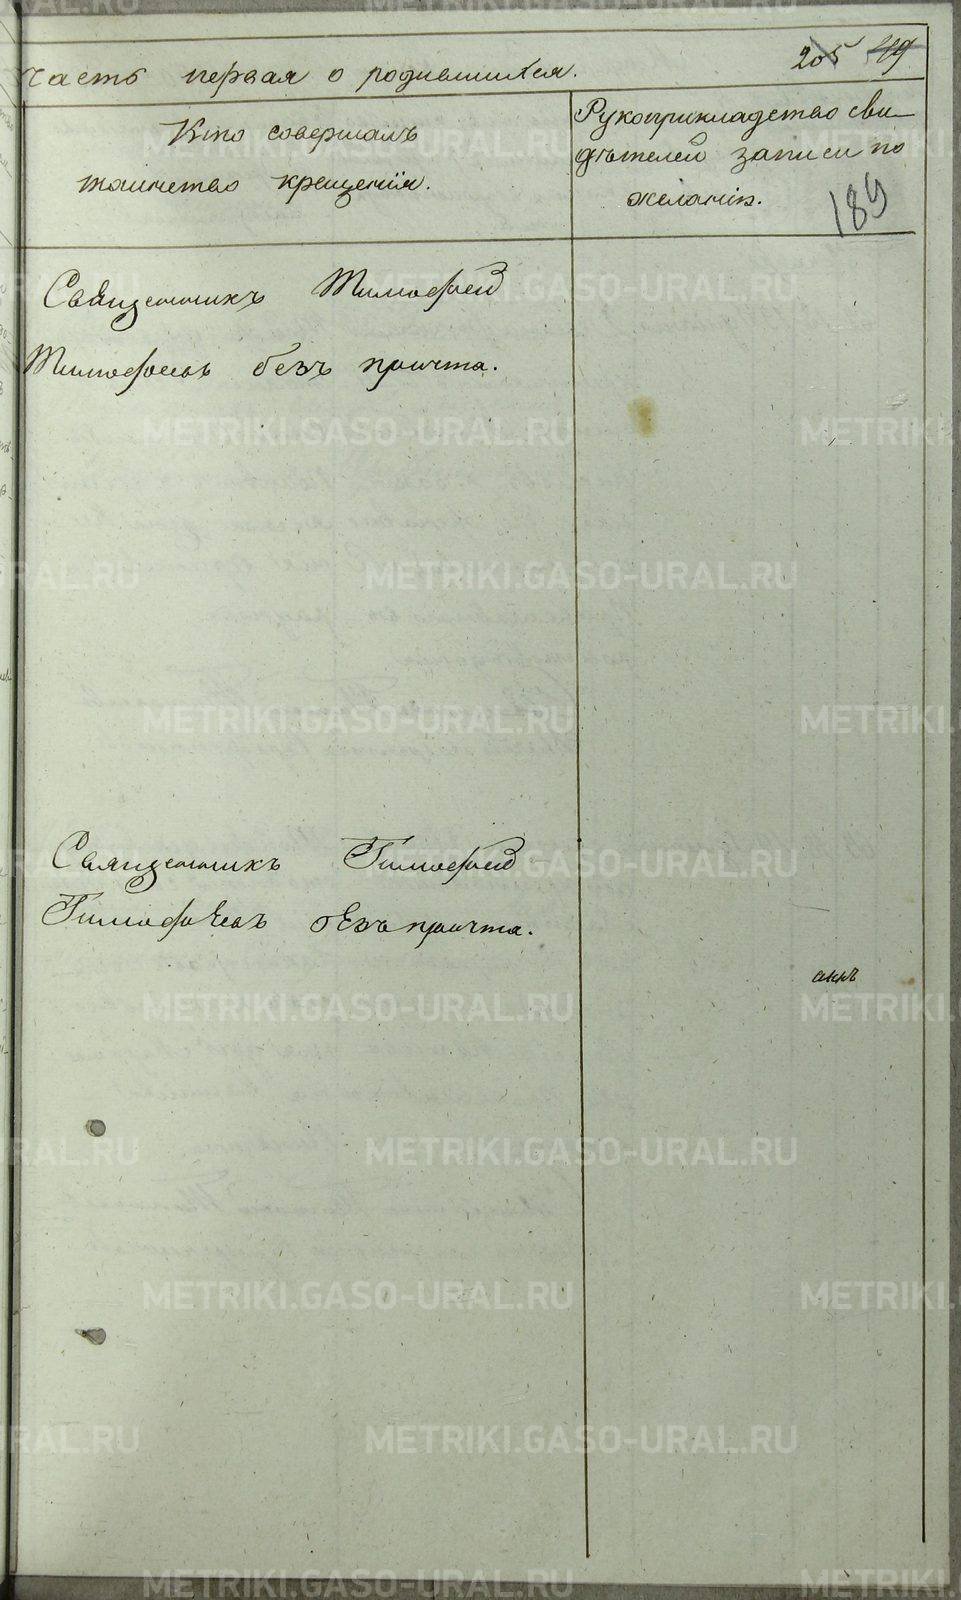 часть первая о родившихся. 205 49
Кто совершалъ
таинство крещенія.
Рукоприкладство сви-
дѣтелей записи по
желанію.
189
Священникъ Тимофей
Тимофеевъ безъ причта.
Священникъ Тимофей
Тимофѣевъ безъ причта.
METRIKI.GASO-URAL.RU